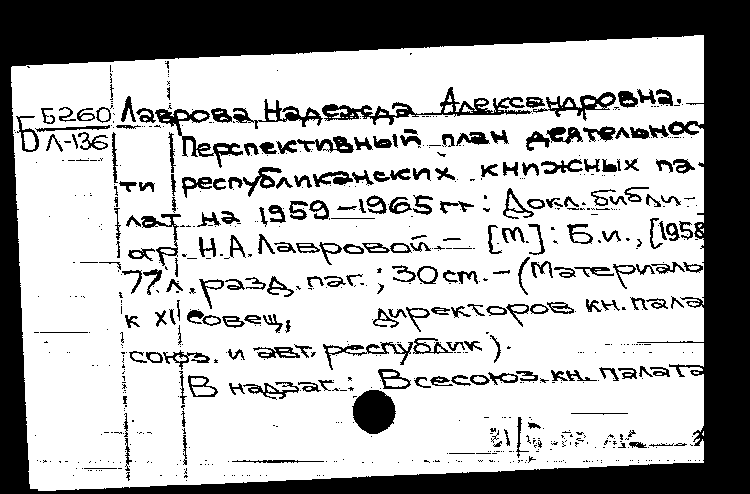 Б Б260 Лаврова, Надежда Александровна.
Л-136 Перспективный план деятельнос-
ти республиканских книжных па-
лат на 1959-1965 гг: Докл. библи-
огр. Н.А. Лавровой. - [М.]: Б.и., [1958
77 л. разд. паг.; 30 см. - (Материалы
к XI совещ, директоров кн. пала
союз. и авт. республик).
В надзаг.: Всесоюз. кн. палата